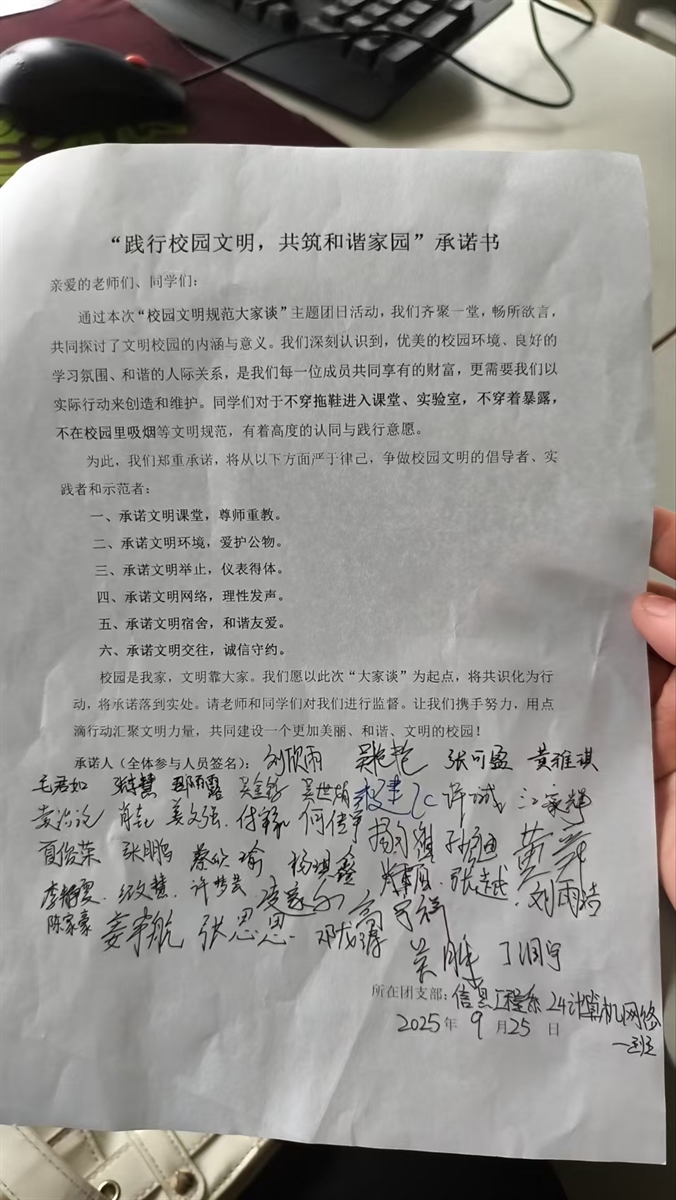 “践行校园文明，共筑和谐家园”承诺书
亲爱的老师们、同学们：
通过本次“校园文明规范大家谈”主题团日活动，我们齐聚一堂，畅所欲言，
共同探讨了文明校园的内涵与意义。我们深刻认识到，优美的校园环境、良好的
学习氛围、和谐的人际关系，是我们每一位成员共同享有的财富，更需要我们以
实际行动来创造和维护。同学们对于不穿拖鞋进入课堂、实验室，不穿着暴露，
不在校园里吸烟等文明规范，有着高度的认同与践行意愿。
为此，我们郑重承诺，将从以下方面严于律己，争做校园文明的倡导者、实
践者和示范者：
一、承诺文明课堂，尊师重教。
二、承诺文明环境，爱护公物。
三、承诺文明举止，仪表得体。
四、承诺文明网络，理性发声。
五、承诺文明宿舍，和谐友爱。
六、承诺文明交往，诚信守约。
校园是我家，文明靠大家。我们愿以此次“大家谈”为起点，将共识化为行
动，将承诺落到实处。请老师和同学们对我们进行监督。让我们携手努力，用点
滴行动汇聚文明力量，共同建设一个更加美丽、和谐、文明的校园！
承诺人（全体参与人员签名）：刘欣雨 吴艳艳 张可盈 黄雅琪
毛君如 吴世炳 许诚 江家辉
肖 姜文强 何佳军
夏俊荣 张鹏 蔡 瑜 杨琪鑫 孙 迪
李静雯 许梦芸 张越 刘雨洁
陈家豪 姜宇航 张思思 邓龙 高宇祥
吴胜 丁润宇
所在团支部：信息工程系24计算机网络
一班
2025年9月25日